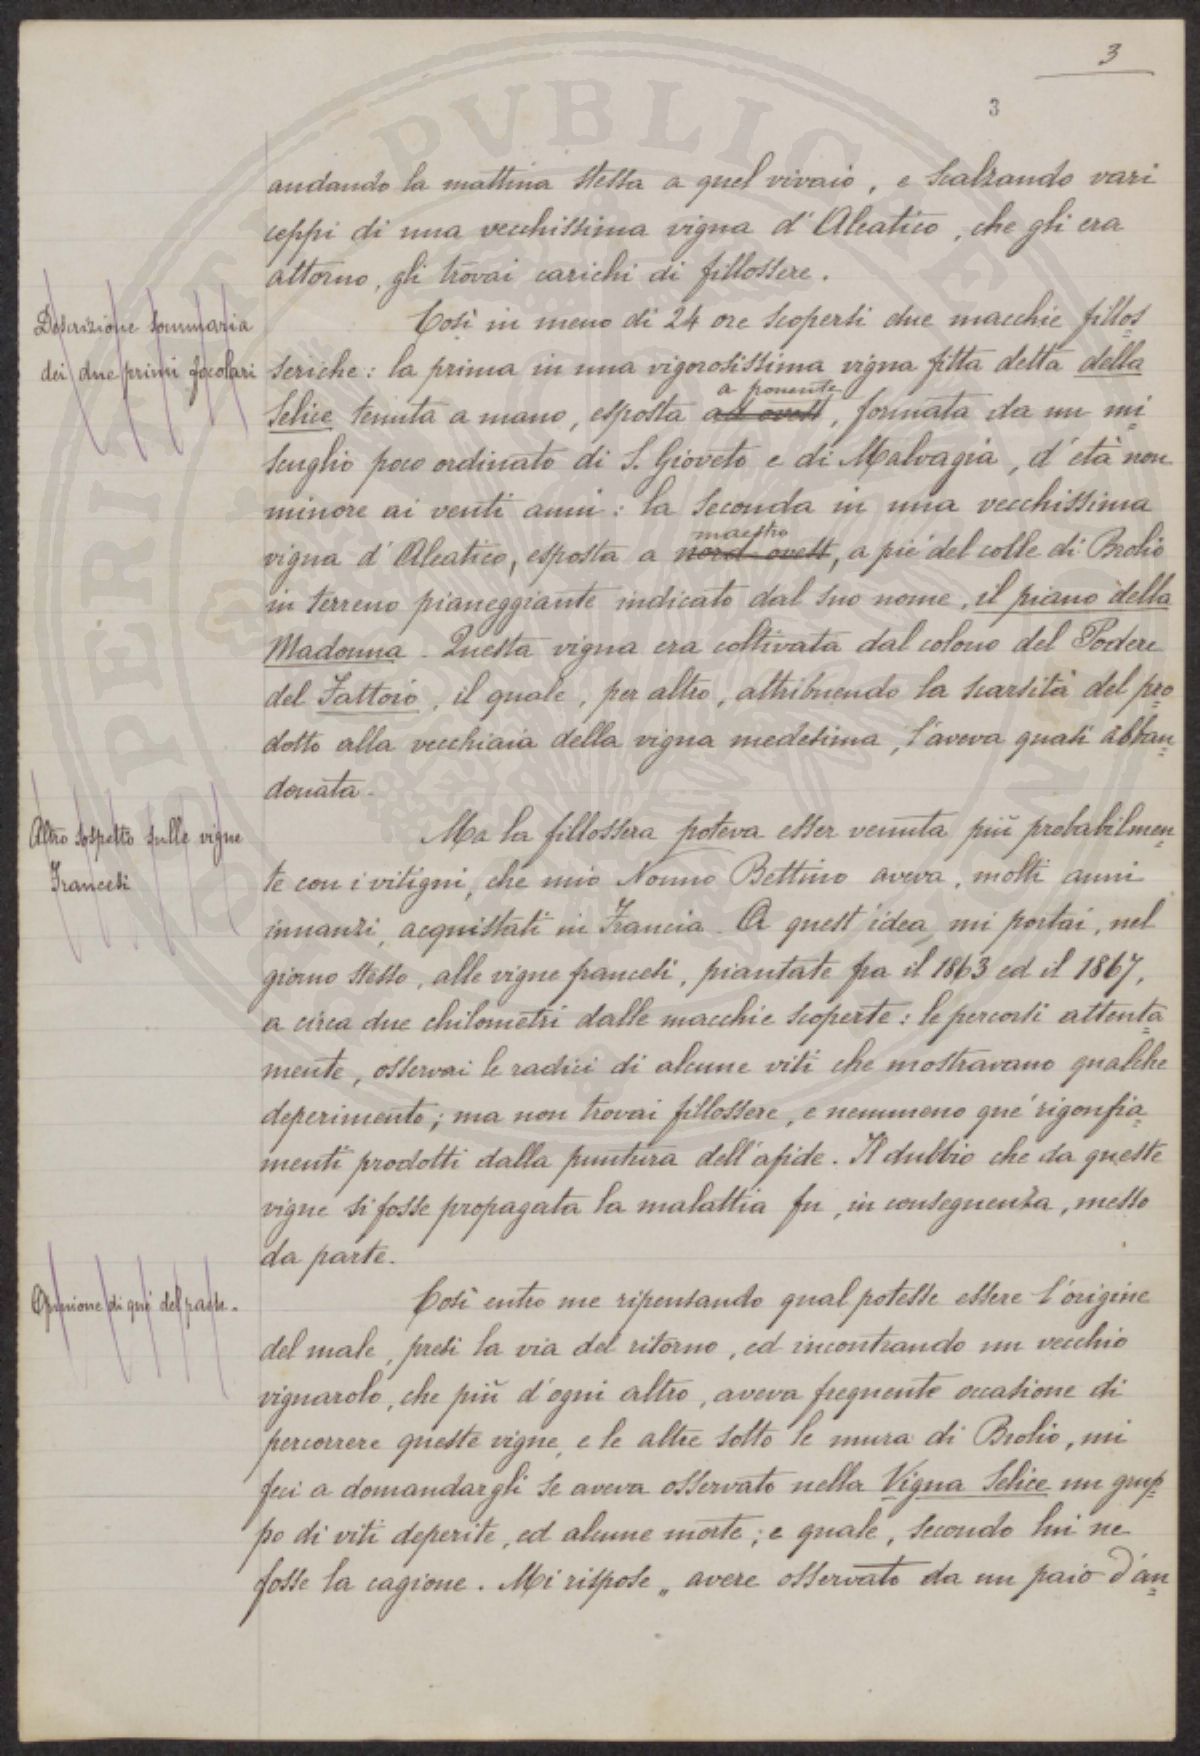 3
3
andando la mattina stessa a quel vivaio, e scalzando vari
ceppi di una vecchissima vigna d'Aleatico, che gli era
attorno, gli trovai carichi di fillossere.
Descrizione sommaria
dei due primi focolari
Così in meno di 24 ore scopersi due macchie fillos=
seriche: la prima in una vigorosissima vigna fitta detta della
a ponente
Selice tenuta a mano, esposta ad ovest, formata da un mi=
scuglio poco ordinato di S. Gioveto e di Malvagia, d'età non
minore ai venti anni: la seconda in una vecchissima
maestro
vigna d'Aleatico, esposta a nord-ovest, a pie' del colle di Brolio
in terreno pianeggiante indicato dal suo nome, il piano della
Madonna - Questa vigna era coltivata dal colono del Podere
del Fattoio, il quale, per altro, attribuendo la scarsità del pro=
dotto alla vecchiaia della vigna medesima, l'aveva quasi abban=
donata -
Altro sospetto sulle vigne
Francesi
Ma la fillossera poteva esser venuta più probabilmen=
te con i vitigni, che mio Nonno Bettino aveva, molti anni
innanzi, acquistati in Francia - A quest'idea, mi portai, nel
giorno stesso, alle vigne francesi, piantate fra il 1863 ed il 1867,
a circa due chilometri dalle macchie scoperte: le percorsi attenta=
mente, osservai le radici di alcune viti che mostravano qualche
deperimento; ma non trovai fillossere, e nemmeno que' rigonfia=
menti prodotti dalla puntura dell'afide. Il dubbio che da queste
vigne si fosse propagata la malattia fu, in conseguenza, messo
da parte.
Opinione di que' del paese -
Così entro me ripensando qual potesse essere l'origine
del male, presi la via del ritorno, ed incontrando un vecchio
vignarolo, che più d'ogni altro, aveva frequente occasione di
percorrere queste vigne, e le altre sotto le mura di Brolio, mi
feci a domandargli se aveva osservato nella Vigna Selice un grup=
po di viti deperite, ed alcune morte; e quale, secondo lui ne
fosse la cagione. Mi rispose „ avere osservato da un paio d'an=